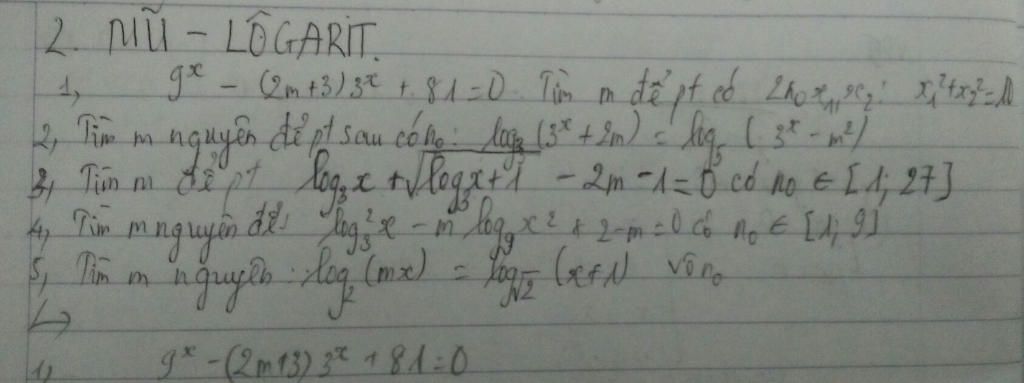 2. MŨ - LÔGARIT.
1, 9^x - (2m+3)3^x + 81=0. Tìm m để pt có 2n₀ x₁, x₂: x₁²+x₂²=10
2, Tìm m nguyên để pt sau có n₀: log₃(3^x+2m) = log₅(3^x - m²)
3, Tìm m để pt log₃x + √(log₃x+1) - 2m - 1=0 có n₀ ∈ [1; 27]
4, Tìm m nguyên để: log₃²x - m log₉x² + 2-m=0 có n₀ ∈ [1; 9]
5, Tìm m nguyên: log₂(mx) = log_√2 (x+1) vô n₀
↳
1, 9^x - (2m+3)3^x + 81=0